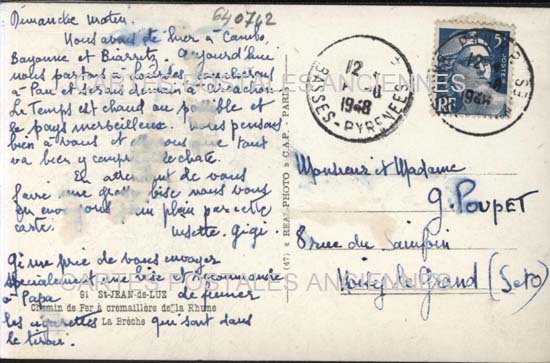 Dimanche matin.
640742
Nous avons été hier à Cambo
Bayonne et Biarritz. Aujourd'hui
nous partons à Lourdes, coucherons
à Pau et serons demain à Arcachon
Le Temps est chaud au possible et
le pays merveilleux. Nous pensons
bien à vous et que tout
va bien y compris le chat.
En attendant de vous
faire une grosse bise nous vous
en envoyons un plein par cette
carte.
Gigi.
Gi me prie de vous envoyer
spécialement une bise et recommande
à Papa de fumer
les cigarettes qui sont dans
le tiroir.
91 St-JEAN-de-LUZ
Chemin de Fer à crémaillère de la Rhune
La Brèche
(47) « REAL-PHOTO » C.A.P. - PARIS
12
1948
BASSES-PYRENEES
5F
RF
12
1948
Monsieur et Madame
G. POUPET
8 rue du Sainfoin
Noisy le Grand (S et O)
CARTES POSTALES ANCIENNES
CARTES POSTALES ANCIENNES